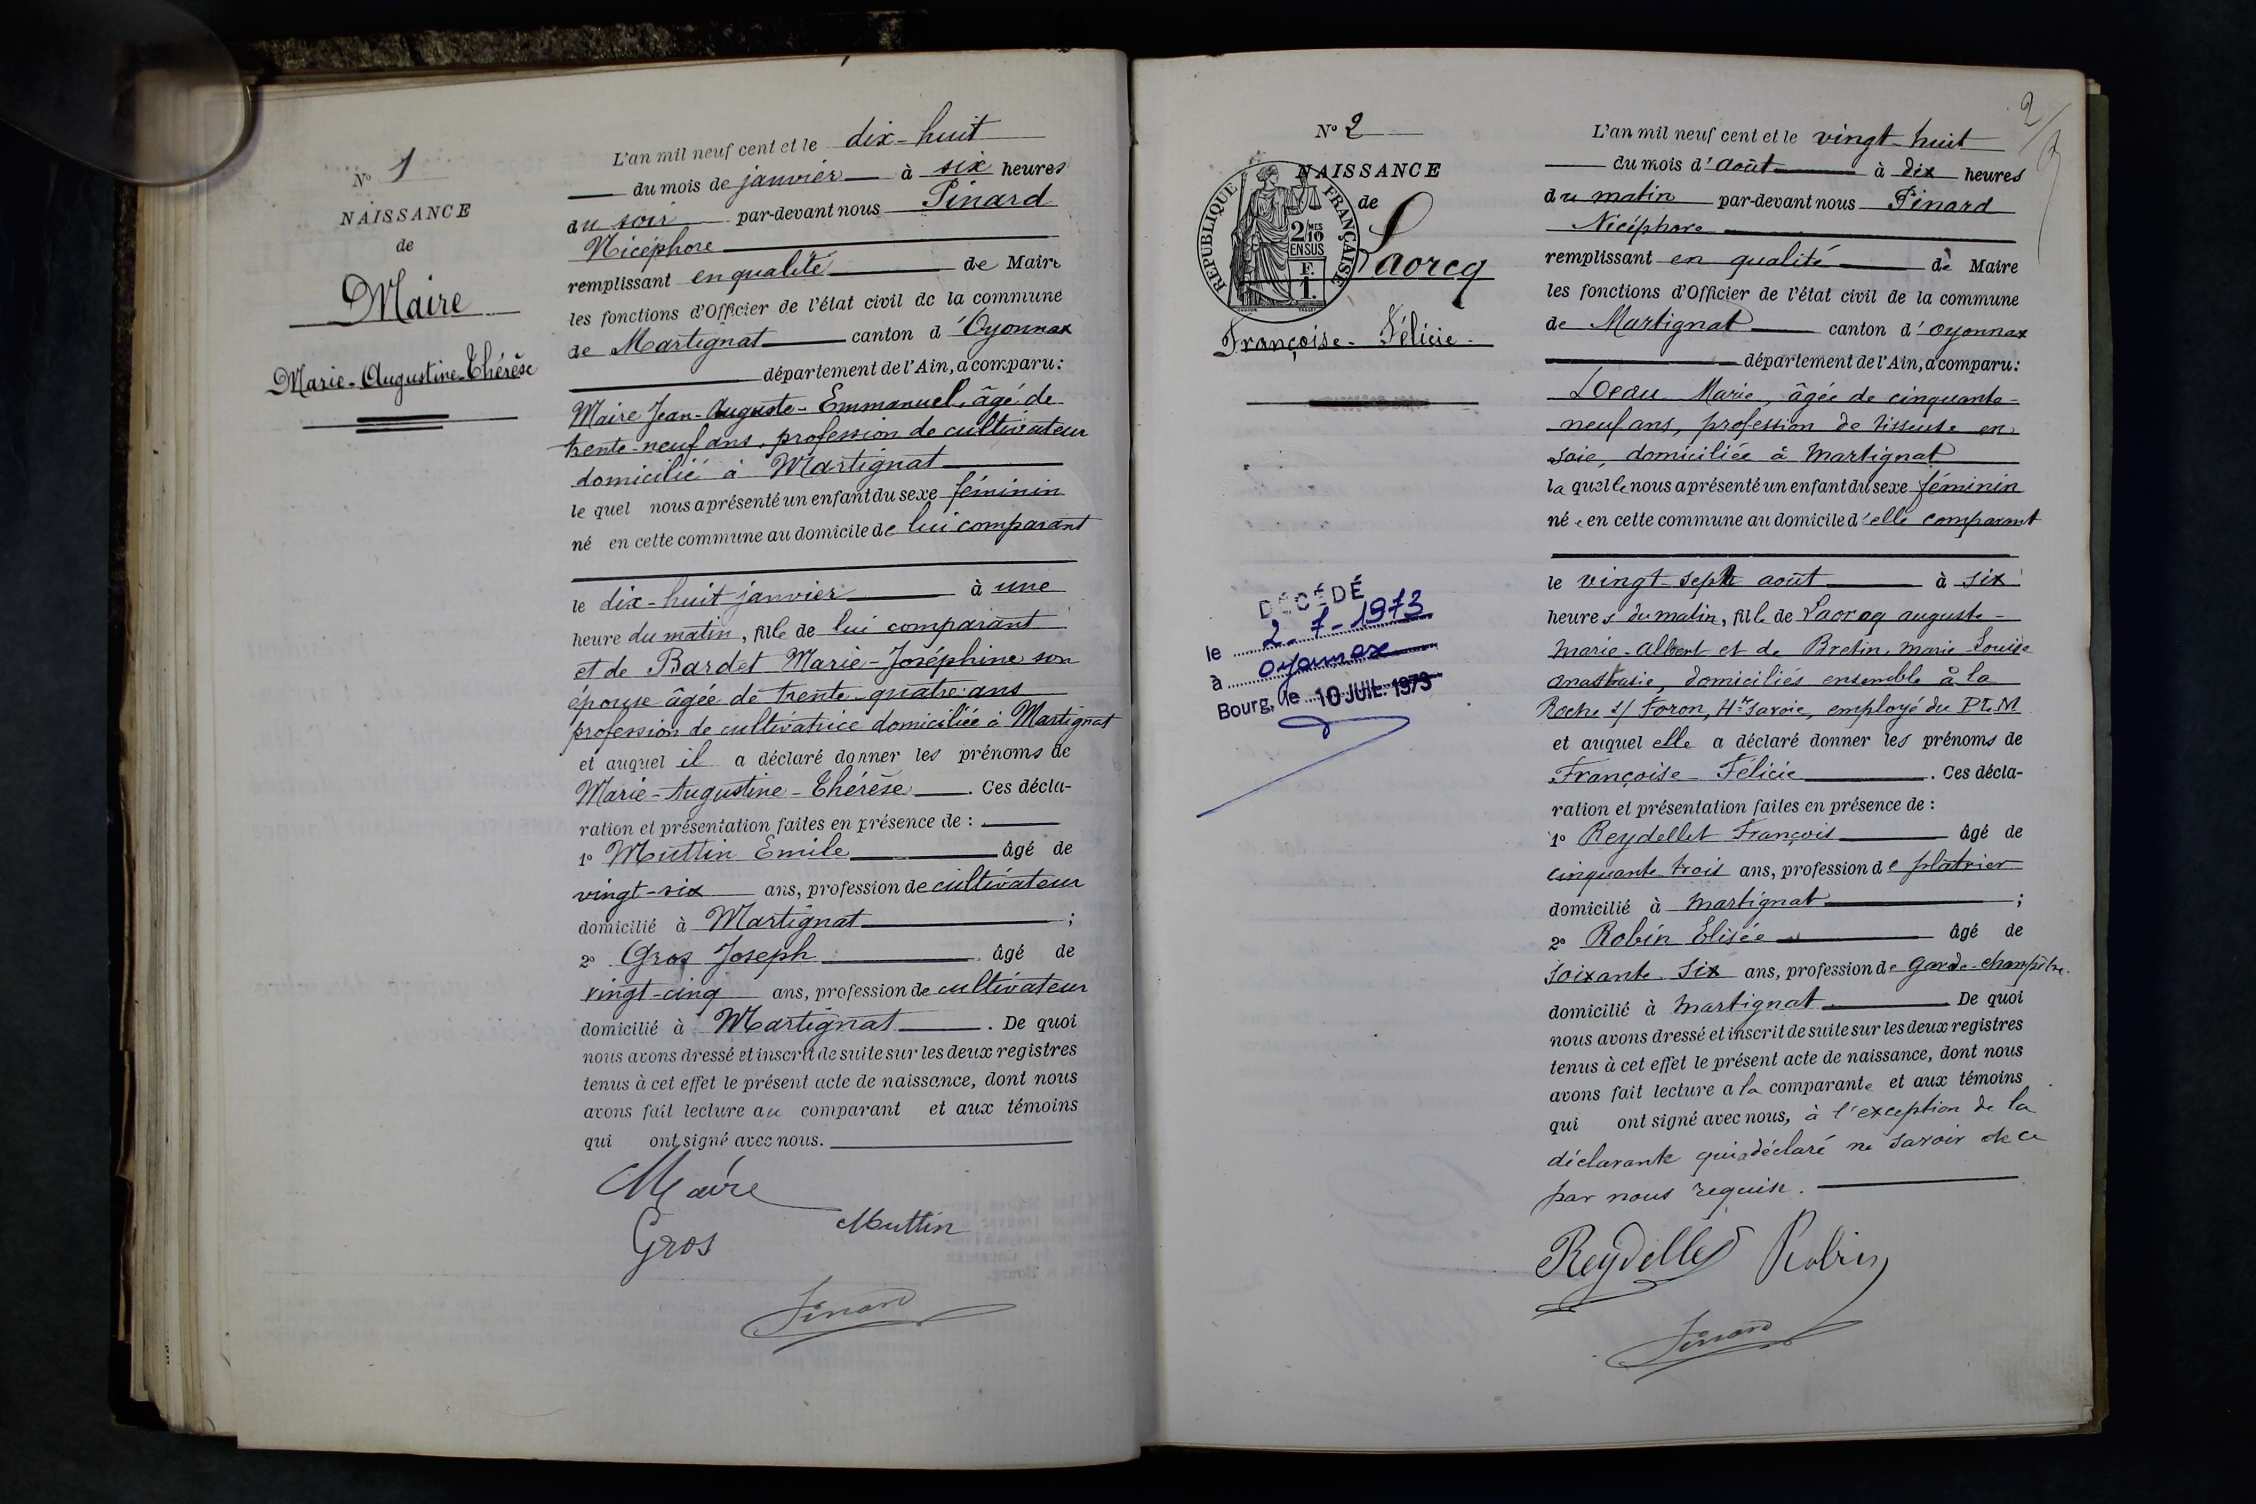 N° 1
NAISSANCE
de
Maire
Marie-Augustine-Thérèse
L'an mil neuf cent et le dix-huit
du mois de janvier à six heures
du soir par-devant nous Pinard
Nicéphore
remplissant en qualité de Maire
les fonctions d'Officier de l'état civil de la commune
de Martignat canton d'Oyonnax
département de l'Ain, a comparu :
Maire Jean-Auguste-Emmanuel, âgé de
trente-neuf ans, profession de cultivateur
domicilié à Martignat
le quel nous a présenté un enfant du sexe féminin
né en cette commune au domicile de lui comparant
le dix-huit janvier à une
heure du matin, fille de lui comparant
et de Bardet Marie-Joséphine son
épouse âgée de trente-quatre ans
profession de cultivatrice domiciliée à Martignat
et auquel il a déclaré donner les prénoms de
Marie-Augustine-Thérèse. Ces décla-
ration et présentation faites en présence de :
1° Muttin Emile âgé de
vingt-six ans, profession de cultivateur
domicilié à Martignat ;
2° Gros Joseph âgé de
vingt-cinq ans, profession de cultivateur
domicilié à Martignat. De quoi
nous avons dressé et inscrit de suite sur les deux registres
tenus à cet effet le présent acte de naissance, dont nous
avons fait lecture au comparant et aux témoins
qui ont signé avec nous.
Maire
Muttin
Gros
Pinard
2
N° 2
NAISSANCE
de
Laorcq
Françoise-Félicie
REPUBLIQUE FRANÇAISE
2/10 MES
EN SUS
F.
1.
DÉCÉDÉ
le 2-7-1973
à Oyonnax
Bourg, le 10 JUIL. 1973
L'an mil neuf cent et le vingt-huit
du mois d'août à dix heures
du matin par-devant nous Pinard
Nicéphore
remplissant en qualité de Maire
les fonctions d'Officier de l'état civil de la commune
de Martignat canton d'Oyonnax
département de l'Ain, a comparu :
Marie, âgée de cinquante-
neuf ans, profession de tisseuse en
soie, domiciliée à Martignat
la quelle nous a présenté un enfant du sexe féminin
née en cette commune au domicile d'elle comparant
le vingt-sept août à six
heures du matin, fille de Laorcq auguste-
Marie-Albert et de Bretin, Marie-Louise
Anastasie, domiciliés ensemble à la
Roche s/ Foron, Hte Savoie, employé du PLM
et auquel elle a déclaré donner les prénoms de
Françoise-Félicie. Ces décla-
ration et présentation faites en présence de :
1° Reydellet François âgé de
cinquante-trois ans, profession de plâtrier
domicilié à Martignat ;
2° Robin Elisée âgé de
soixante-six ans, profession de garde-champêtre
domicilié à Martignat. De quoi
nous avons dressé et inscrit de suite sur les deux registres
tenus à cet effet le présent acte de naissance, dont nous
avons fait lecture a la comparante et aux témoins
qui ont signé avec nous, à l'exception de la
déclarante qui a déclaré ne savoir de ce
par nous requise.
Reydellet Robin
Pinard